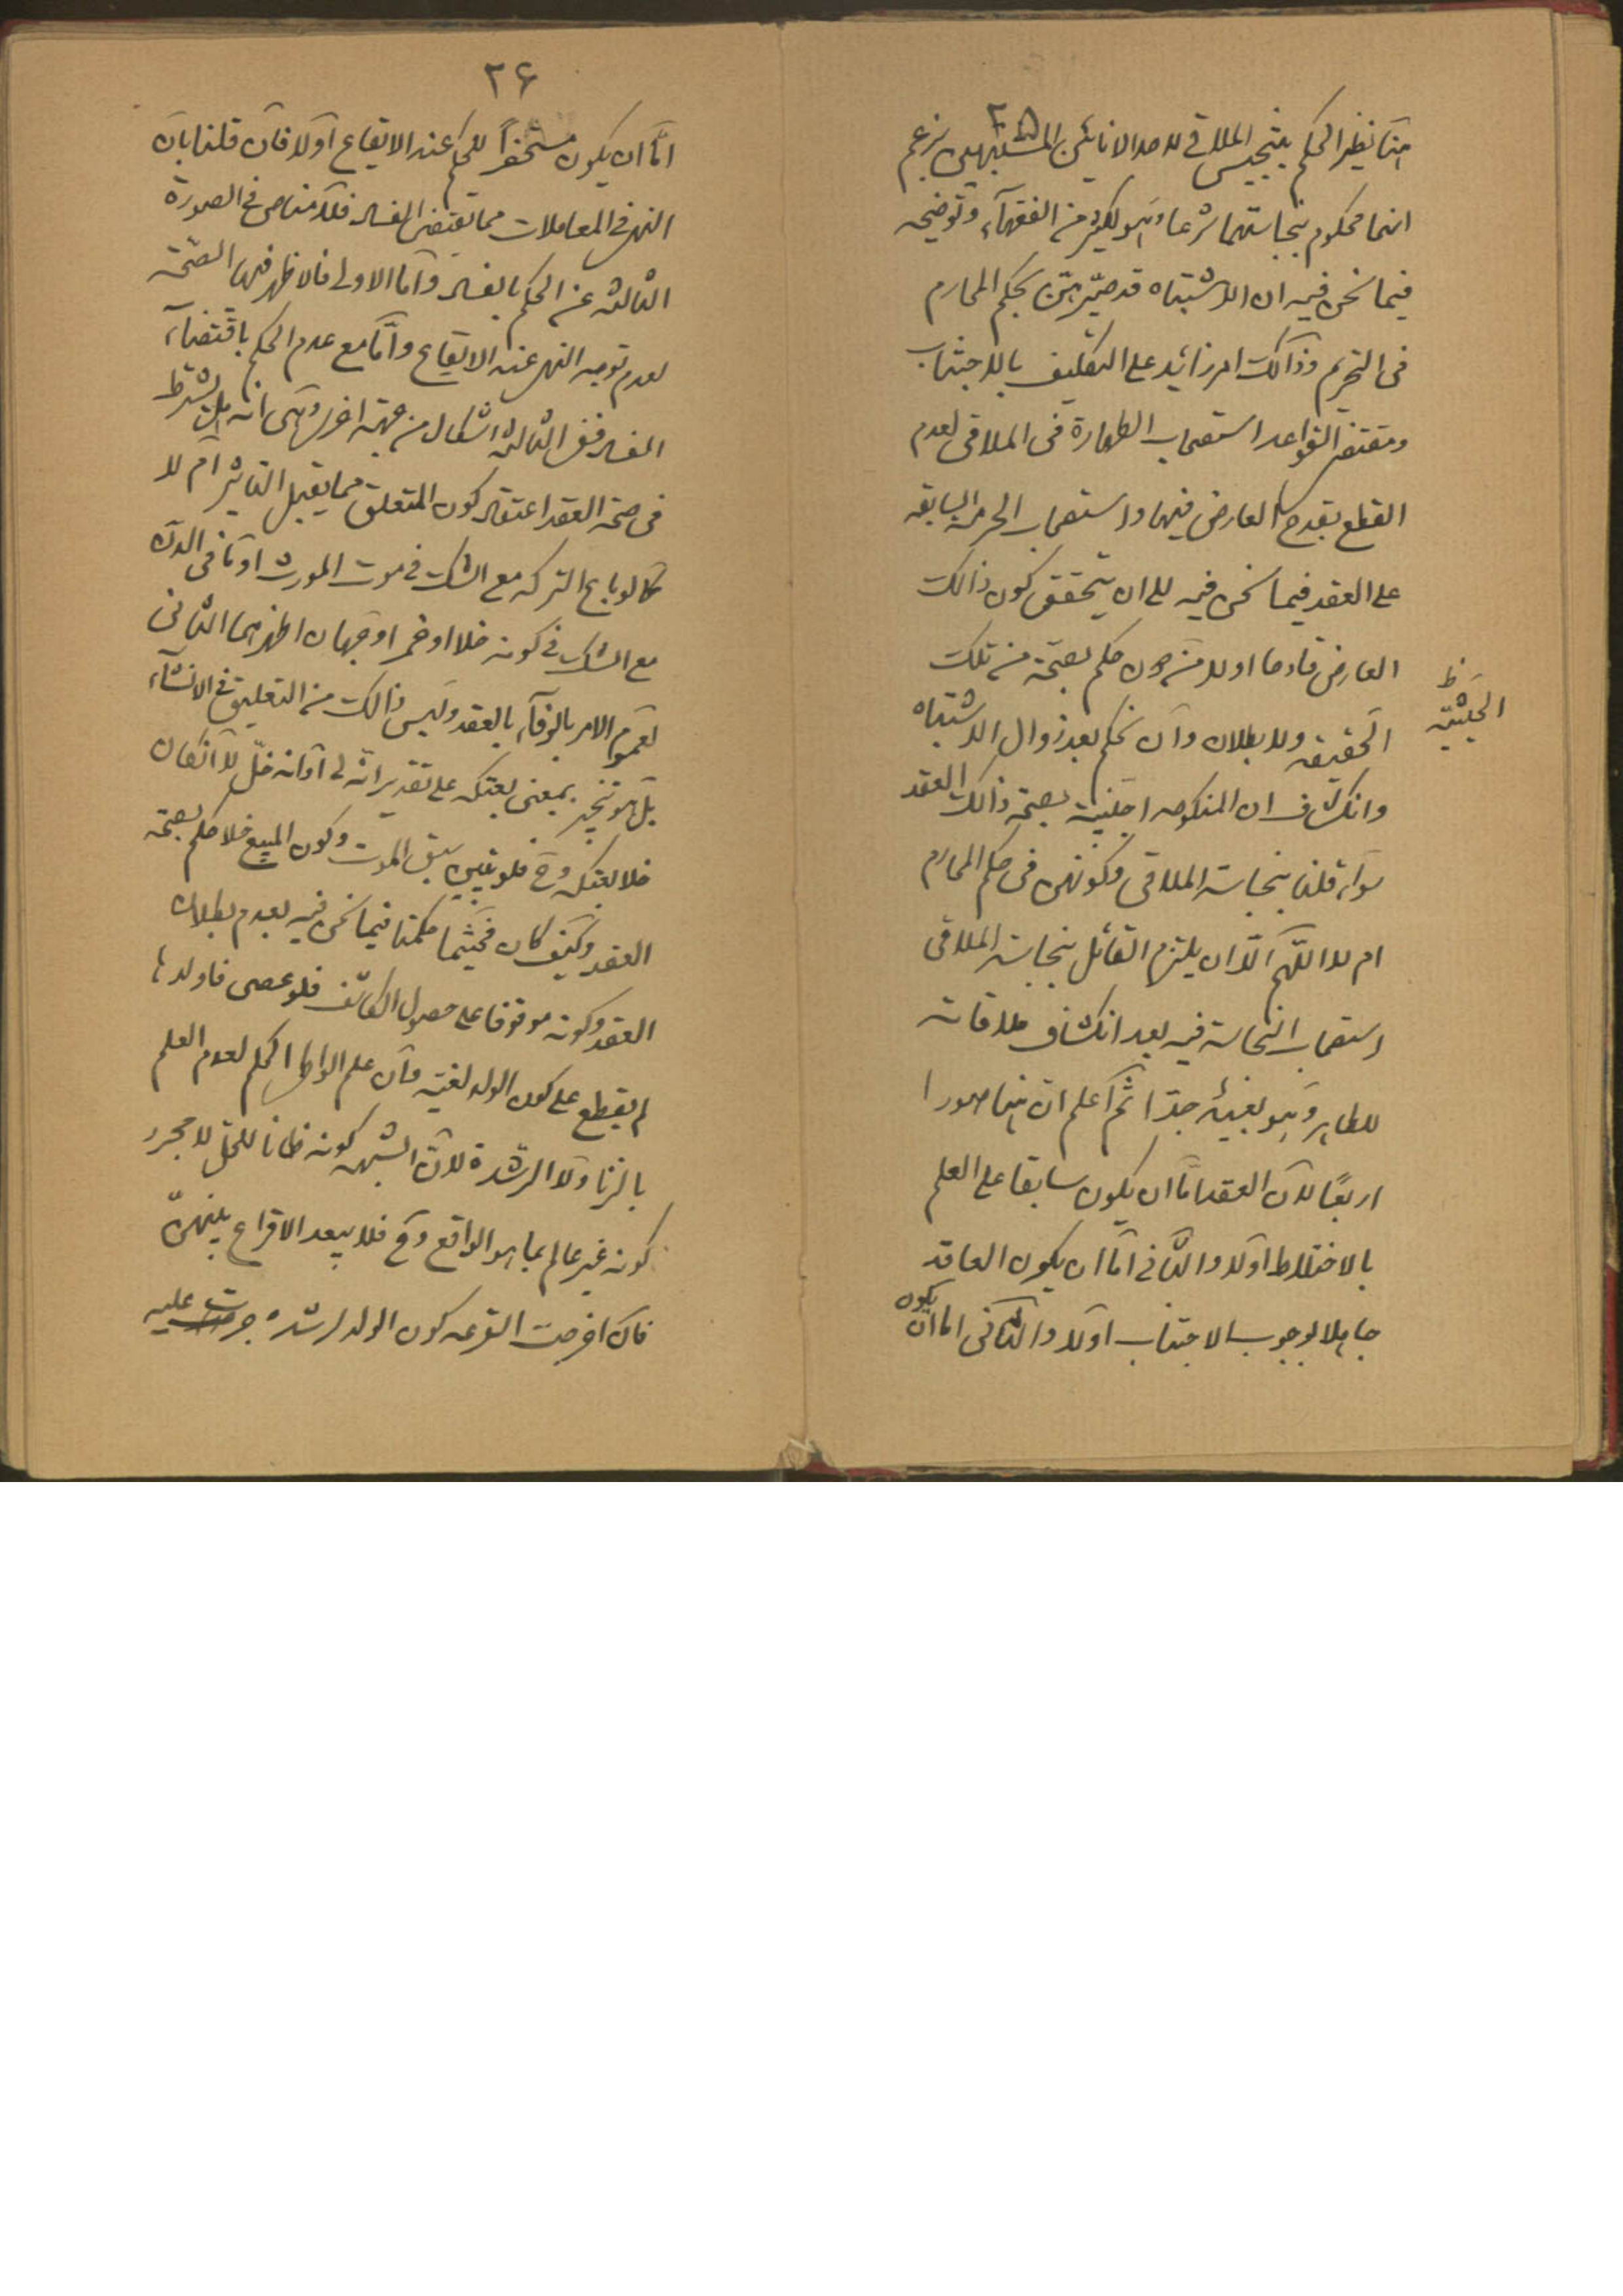 ٢٥
هنا نظير الحكم بتنجيس الملاقى لاحد الانائين المشتبهين بزعم
انهما محكوم بنجاستهما شرعا وهو لكثير من الفقهآء وتوضيحه
فيما نحن فيه ان الاشتباه قد صيّرهنّ بحكم المحارم
فى التحريم وذالك امر زائد على التكليف بالاجتناب
ومقتضى القواعد استصحاب الطهارة فى الملاقى لعدم
القطع بقدح العارض فيها واستصحاب الحرمة السابقه
على العقد فيما نحن فيه الى ان يتحقق كون ذالك
العارض قادحا اولا من دون حكم بصحّة من تلك
الحيثيّة ظ
الحقيقه ولا بطلان وان نحكم بعد زوال الاشتباه
وانكشاف ان المنكوحه اجنبيّة بصحّة ذالك العقد
سوآء قلنا بنجاسة الملاقى وكونهن فى حكم المحارم
ام لا اللّهم الّا ان يلتزم القائل بنجاسة الملاقى
استصحاب النجاسة فيه بعد انكشاف ملاقاته
للطاهر وهو بعيد جدّا ثم اعلم انّ هنا صورا
اربعًا لان العقد امّا ان يكون سابقا على العلم
بالاختلاط اولا والثانى امّا ان يكون العاقد
جاهلا لوجوب الاجتناب اولا والثانى اما ان يكون
٢۶
امّا ان يكون مستحضراً للحكم عند الايقاع اولا فان قلنا بان
النهى فى المعاملات مما يقتضى الفساد فلا مناص فى الصورة
الثالثة عن الحكم بالفساد وامّا الاولى فالاظهر فيها الصّحّة
لعدم توجه النهى عند الايقاع وامّا مع عدم الحكم باقتضآء
الفساد ففى الثالثة اشكال من جهة اخرى وهى انه هل يشترط
فى صحة العقد اعتقاد كون المتعلق مما يقبل التاثير ام لا
كما لو باع التركه مع الشك فى موت المورث او ما فى الدن
مع الشك فى كونه خلا او خمر اوجهان اظهرهما الثانى
لعموم الامر بالوفآء بالعقد وليس ذالك من التعليق فى الانشآء
بل هو تنجيز بمعنى بعتكه على تقدير انّه لى او انه خلّ لا ان كان
خلا بعتكه وح فلو تبيّن سبق الموت وكون المبيع خلا حكم بصحّة
العقد وكيف كان فحيثما حكمنا فيما نحن فيه بعدم بطلان
العقد وكونه موقوفا على حصول الكاشف فلو عصى فاولدها
لم يقطع على كون الولد لغيّة وان علم الواطى الحكم لعدم العلم
بالزنا ولا الرشدة لان الشبهه كونه ظانا للحل لا مجرد
كونه غير عالم بما هو الواقع وح فلا يبعد الاقراع بينهنّ
فان اخرجت القرعه كون الولد لرشده جرت عليه